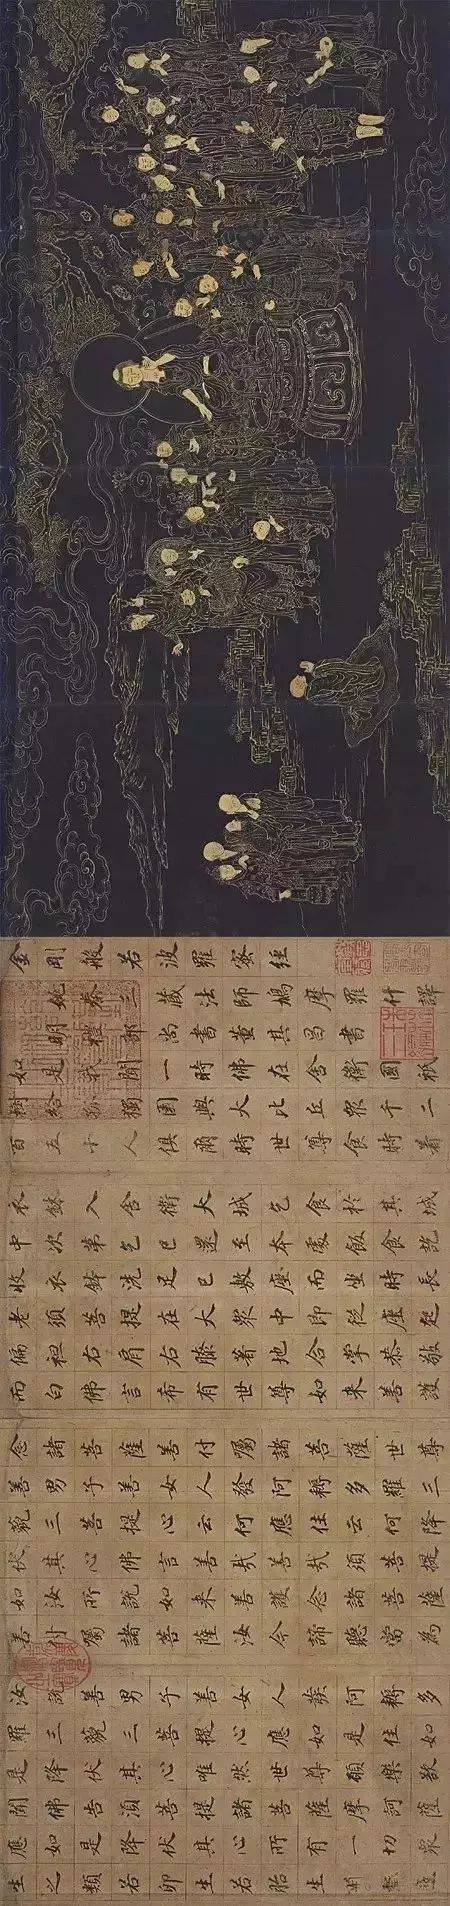 金剛般若波羅蜜經
姚秦三藏法師鳩摩羅什譯
明禮部尚書董其昌書
如是我聞一時佛在舍衛國祇
樹給孤獨園與大比丘眾千二
百五十人俱爾時世尊食時著
衣鉢入舍衛大城乞食於其城
中次第乞已還至本處飯食訖
收衣鉢洗足已敷座而坐時長
老須菩提在大眾中即從座起
偏袒右肩右膝著地合掌恭敬
而白佛言希有世尊如來善護
念諸菩薩善付囑諸菩薩世尊
善男子善女人發阿耨多羅三
藐三菩提心云何應住云何降
伏其心佛言善哉善哉須菩提
如汝所說如來善護念諸菩薩
善付囑諸菩薩汝今諦聽當為
汝說善男子善女人發阿耨多
羅三藐三菩提心應如是住如
是降伏其心唯然世尊願樂欲
聞佛告須菩提諸菩薩摩訶薩
應如是降伏其心所有一切眾
生之類若卵生若胎生